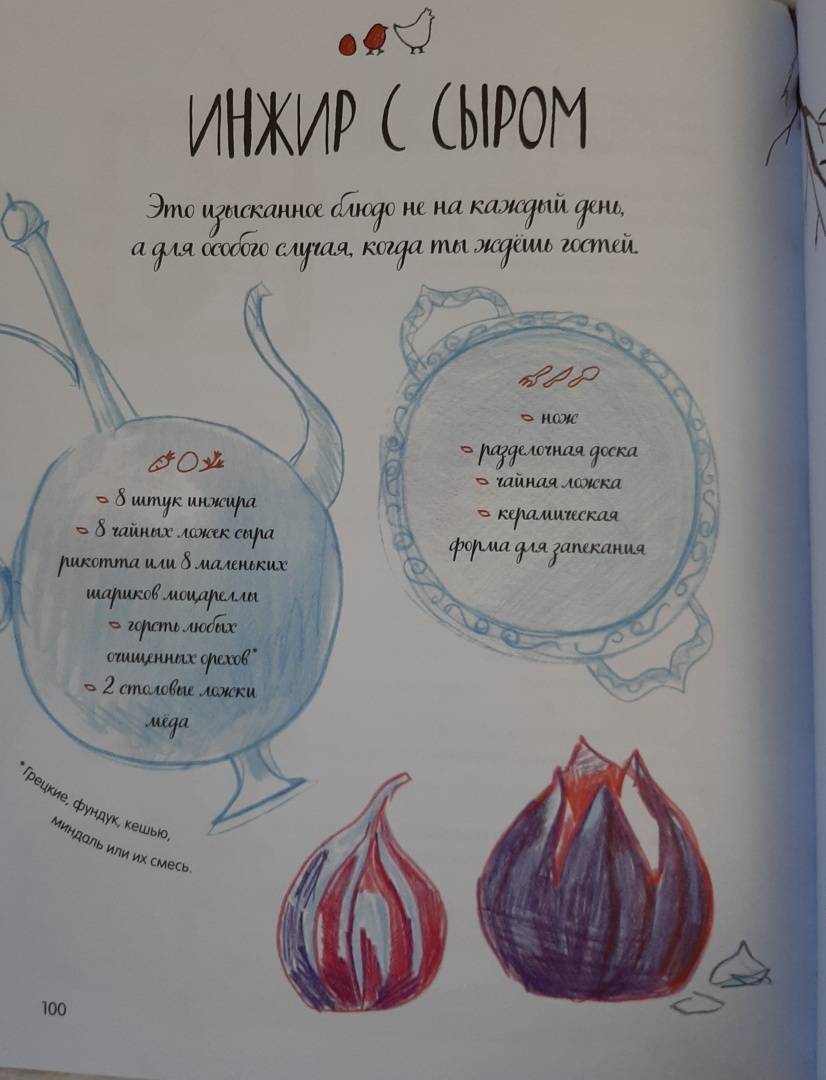 ИНЖИР С СЫРОМ
Это изысканное блюдо не на каждый день,
а для особого случая, когда ты ждёшь гостей.
8 штук инжира
8 чайных ложек сыра
рикотта или 8 маленьких
шариков моцареллы
горсть любых
очищенных орехов*
2 столовые ложки
мёда
нож
разделочная доска
чайная ложка
керамическая
форма для запекания
*Грецкие, фундук, кешью,
миндаль или их смесь.
100